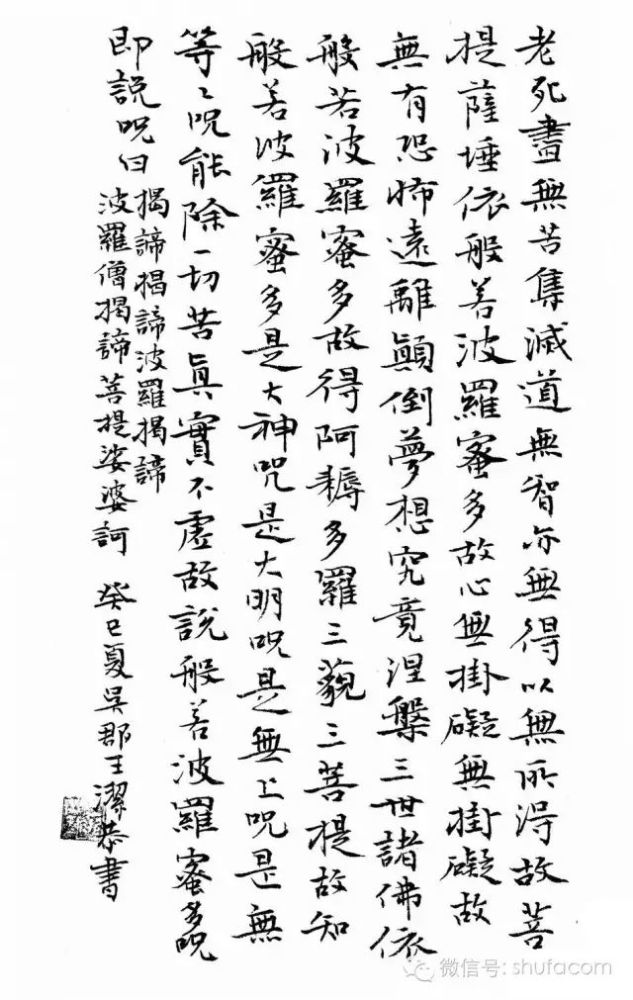 老死盡無苦集滅道無智亦無得以無所得故菩
提薩埵依般若波羅蜜多故心無掛礙無掛礙故
無有恐怖遠離顛倒夢想究竟涅槃三世諸佛依
般若波羅蜜多故得阿耨多羅三藐三菩提故知
般若波羅蜜多是大神咒是大明咒是無上咒是無
等々咒能除一切苦真實不虛故說般若波羅蜜多咒
即說咒曰
揭諦揭諦波羅揭諦
波羅僧揭諦菩提娑婆訶 癸巳夏吳郡王潔恭書
微信号: shufacom